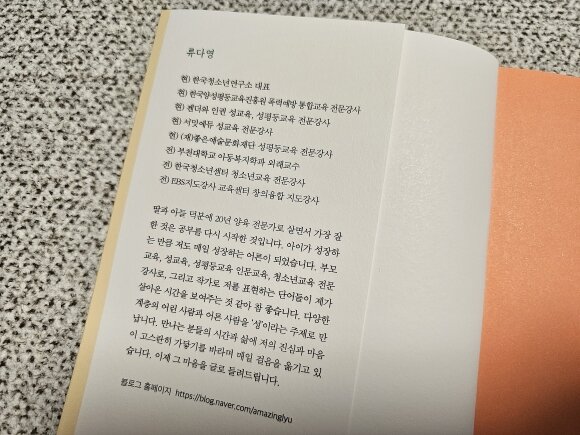 류다영
현) 한국청소년연구소 대표
현) 한국양성평등교육진흥원 폭력예방 통합교육 전문강사
현) 젠더와 인권 성교육, 성평등교육 전문강사
현) 서밋에듀 성교육 전문강사
현) (재)좋은예술문화재단 성평등교육 전문강사
전) 부천대학교 아동복지학과 외래교수
전) 한국청소년센터 청소년교육 전문강사
전) EBS지도강사 교육센터 창의융합 지도강사
딸과 아들 덕분에 20년 양육 전문가로 살면서 가장 잘
한 것은 공부를 다시 시작한 것입니다. 아이가 성장하
는 만큼 저도 매일 성장하는 어른이 되었습니다. 부모
교육, 성교육, 성평등교육 인문교육, 청소년교육 전문
강사로, 그리고 작가로 저를 표현하는 단어들이 제가
살아온 시간을 보여주는 것 같아 참 좋습니다. 다양한
계층의 어린 사람과 어른 사람을 '성'이라는 주제로 만
납니다. 만나는 분들의 시간과 삶에 저의 진심과 마음
이 고스란히 가닿기를 바라며 매일 걸음을 옮기고 있
습니다. 이제 그 마음을 글로 들려드립니다.
블로그 홈페이지 https://blog.naver.com/amazinglyu